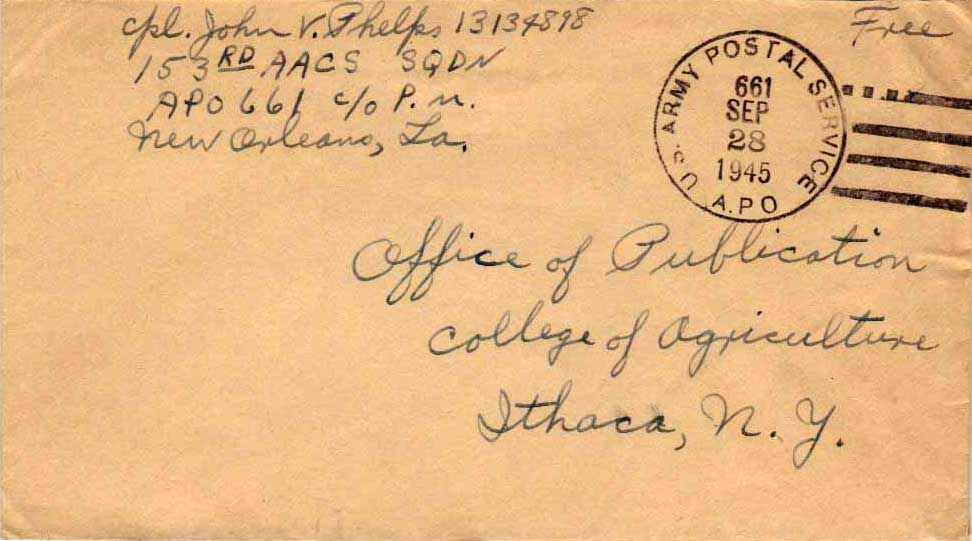 Cpl. John V. Phelps 13134898
Free
153RD AACS SQDN
APO 661 c/o P.M.
New Orleans, La.
U.S. ARMY POSTAL SERVICE
661
SEP
28
1945
A.P.O
Office of Publication
College of Agriculture
Ithaca, N.Y.